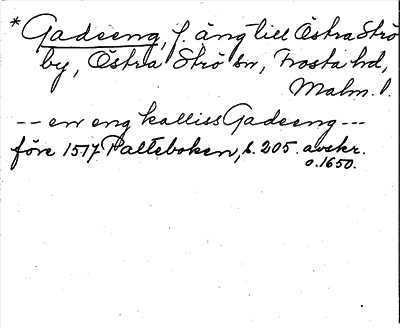 * Gadeeng, f. äng till Östra Strö
by, Östra Strö sn, Frosta hd,
Malm. l.
-- en eng kalliss Gadeeng ---
före 1517 Palteboken, s. 205. avskr.
o. 1650.